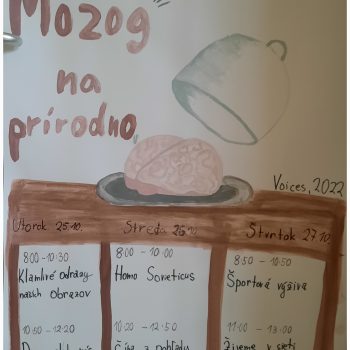 Mozog
na
prírodno
Voices, 2022
Utorok 25.10.
Streda 26.10.
Štvrtok 27.10.
8:00 - 10:30
Klamlivé odrazy
našich obrazov
8:00 - 10:00
Homo Sovieticus
8:50 - 10:50
Športová výživa
10:50 - 12:20
10:20 - 12:50
Čísa z pohľadu
11:00 - 13:00
Žijeme v sieti